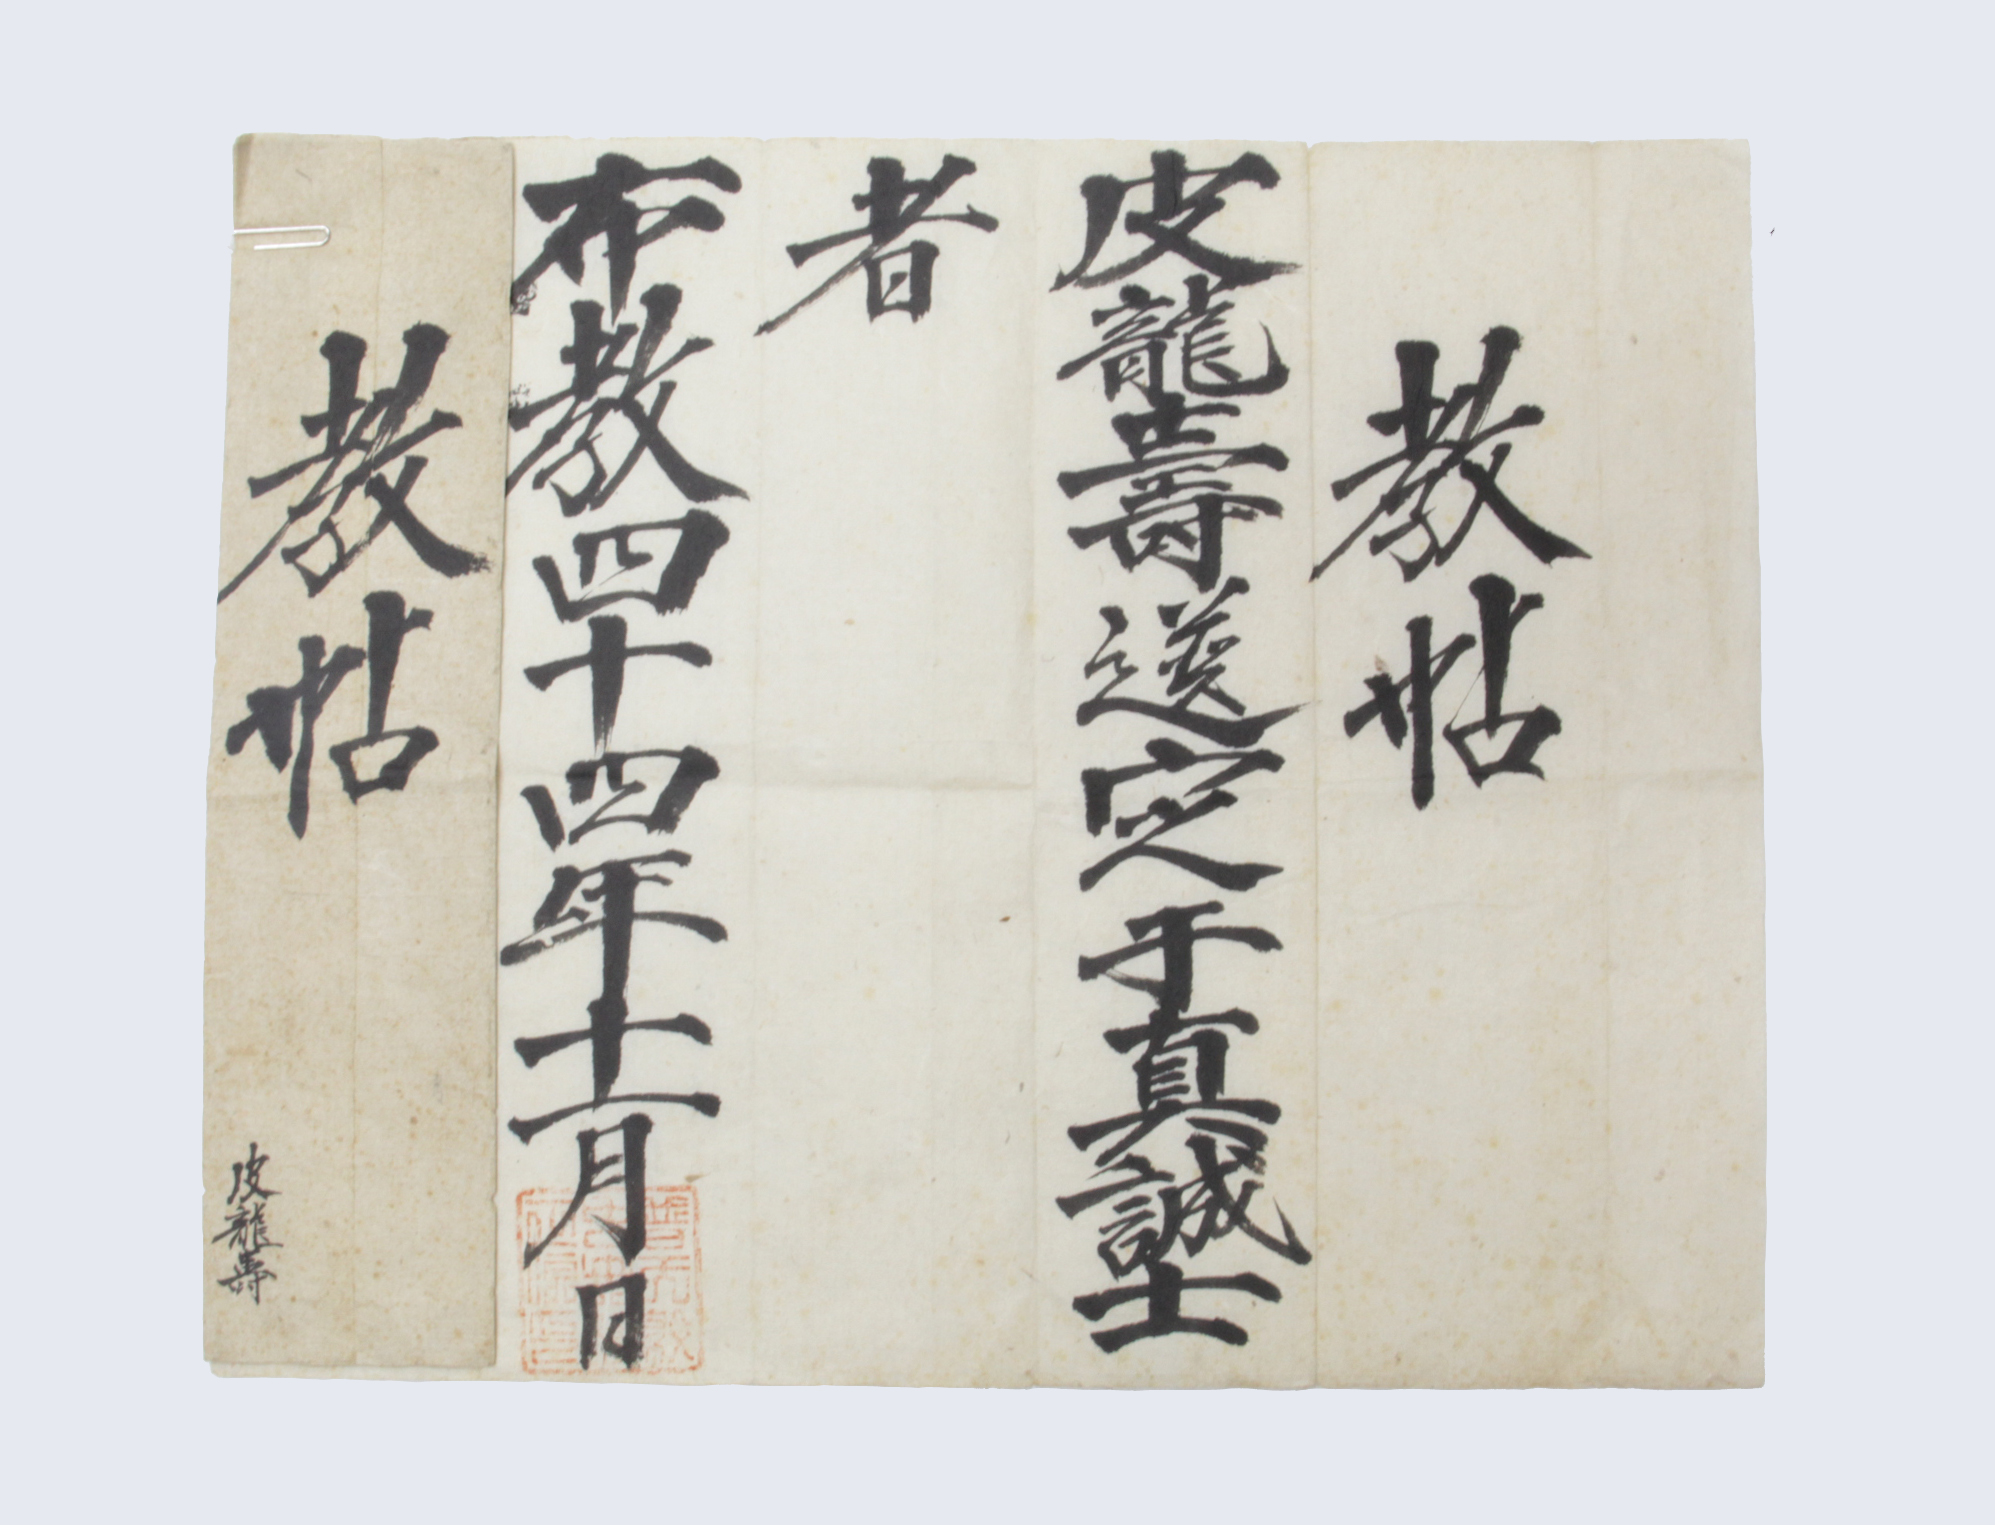 教帖
皮龍壽選定于真誠士
者
布教四十四年十一月日
教帖
皮龍壽